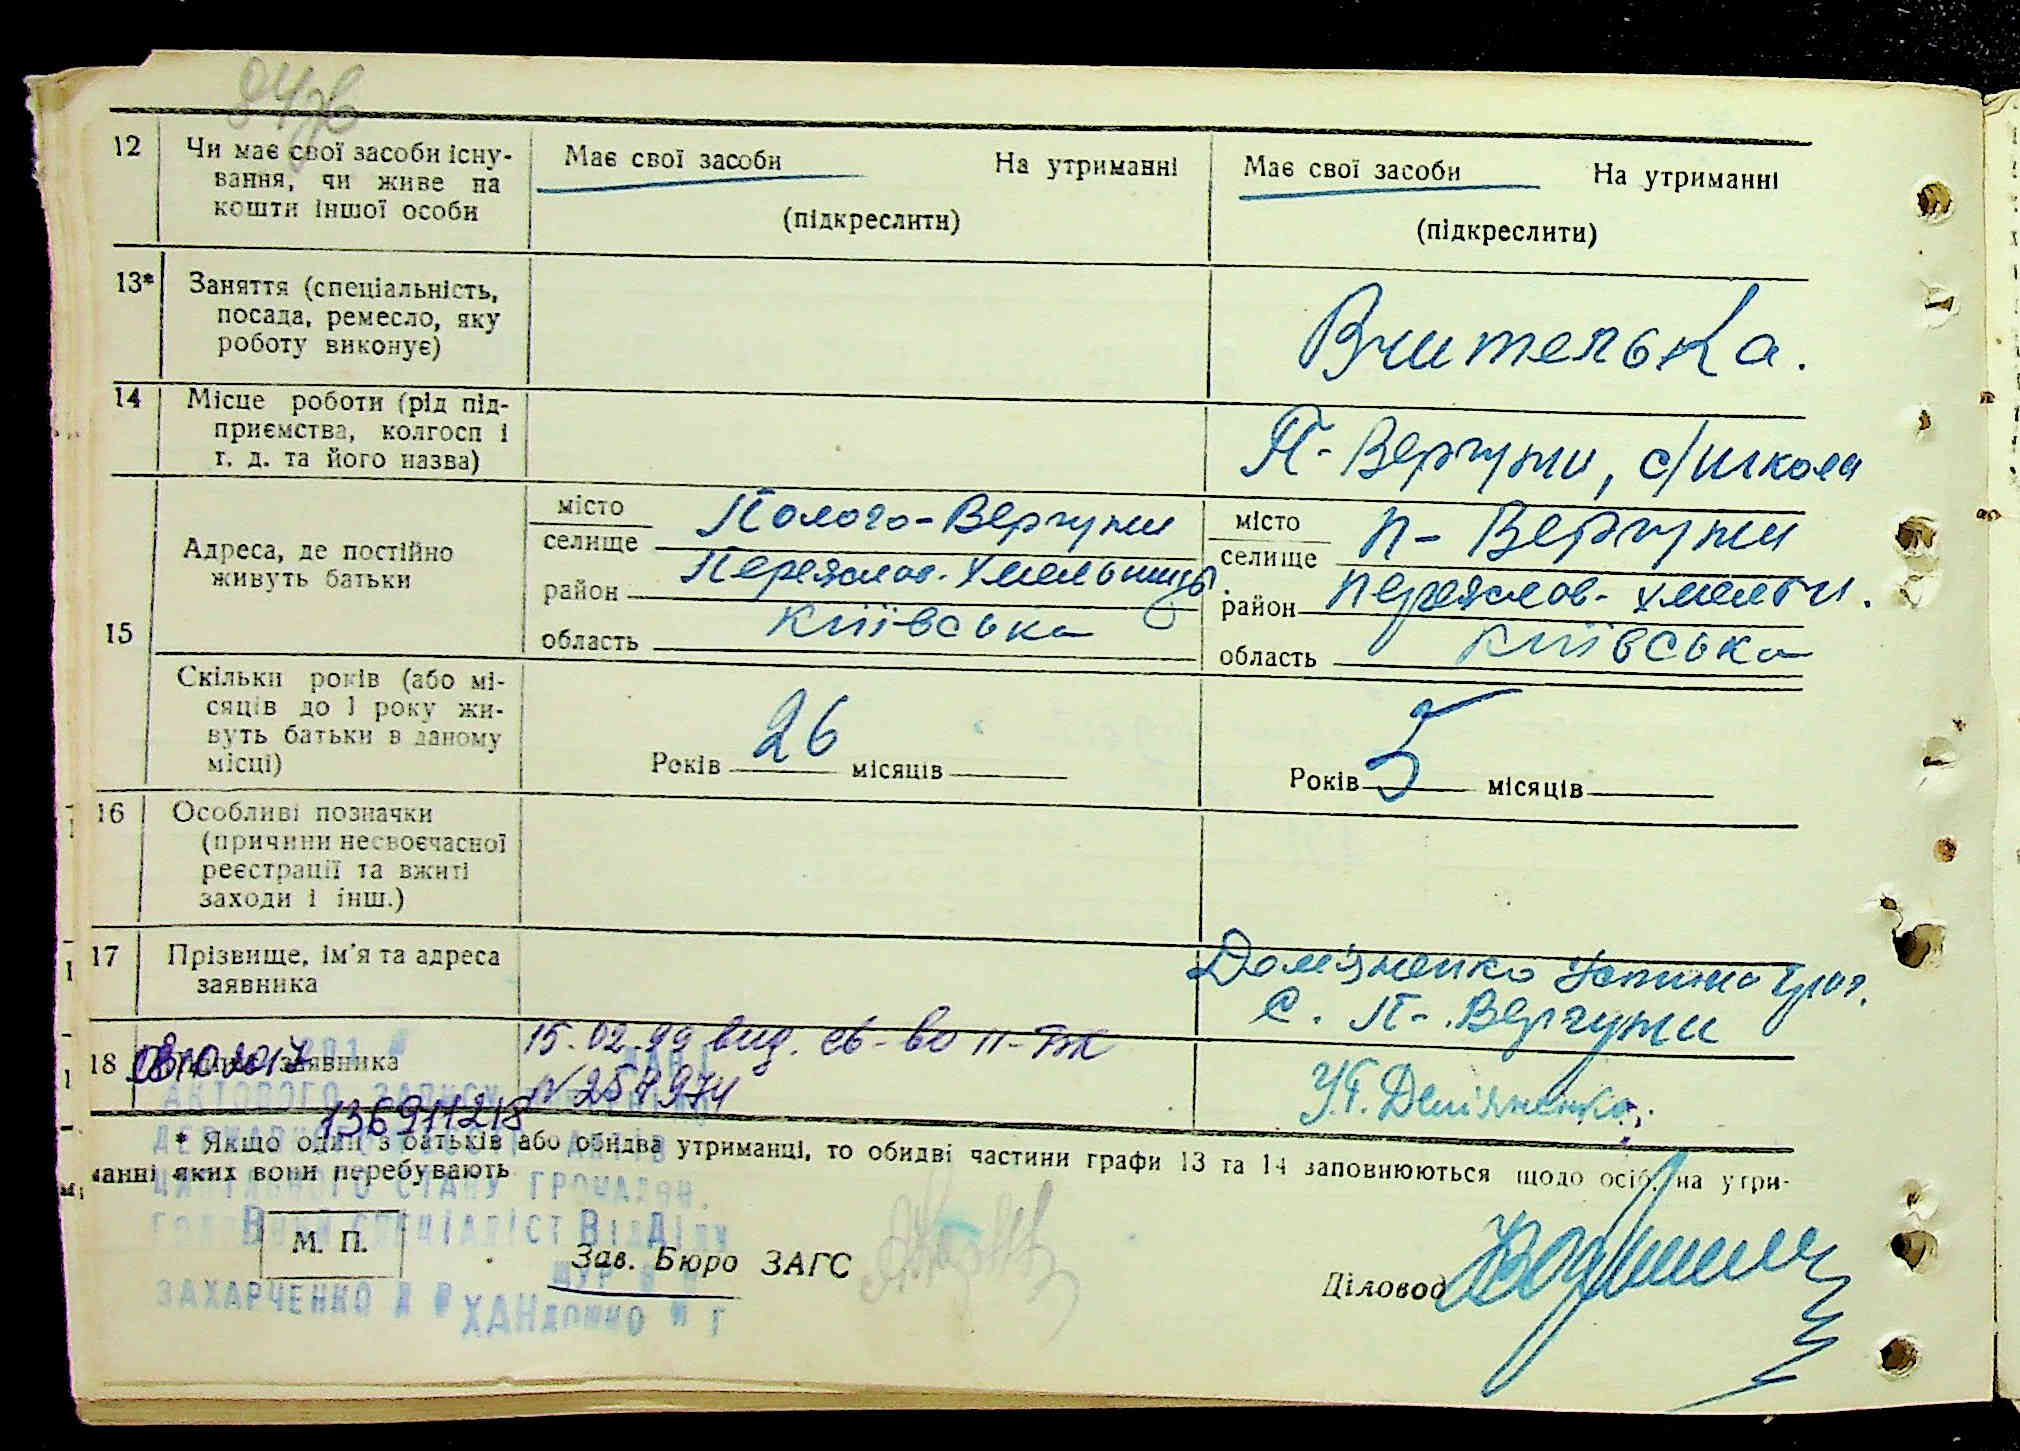 84зв
12 Чи має свої засоби існу- Має свої засоби На утриманні Має свої засоби На утриманні
вання, чи живе на
кошти іншої особи (підкреслити) (підкреслити)
13* Заняття (спеціальність,
посада, ремесло, яку Вчителька.
роботу виконує)
14 Місце роботи (рід під-
приємства, колгосп і П-Вергуни, с/школа
т. д. та його назва)
15 Адреса, де постійно
живуть батьки
місто
селище Полого-Вергуни
район Переяслав-Хмельницьк.
область Київська
місто
селище П-Вергуни
район Переяслав-Хмельн.
область Київська
Скільки років (або мі-
сяців до 1 року жи-
вуть батьки в даному
місці)
Років 26 місяців
Років 5 місяців
16 Особливі позначки
(причини несвоєчасної
реєстрації та вжиті
заходи і інш.)
17 Прізвище, ім'я та адреса Дем'яненко Устина
заявника с. П-Вергуни
18 заявника 15.02.99 вид. св-во ІІ-БК
№ 257974
У.Г. Дем'яненко
03.10.2017
136911218
АКТОВОГО ЗАПИСУ
ДЕРЖАВНОГО
ЦИВІЛЬНОГО СТАНУ ГРОМАДЯН.
ГОЛОВНИЙ СПЕЦІАЛІСТ ВІДДІЛУ
ЗАХАРЧЕНКО
* Якщо один з батьків або обидва утриманці, то обидві частини графи 13 та 14 заповнюються щодо осіб, на утри-
манні яких вони перебувають
М. П. Зав. Бюро ЗАГС Діловод